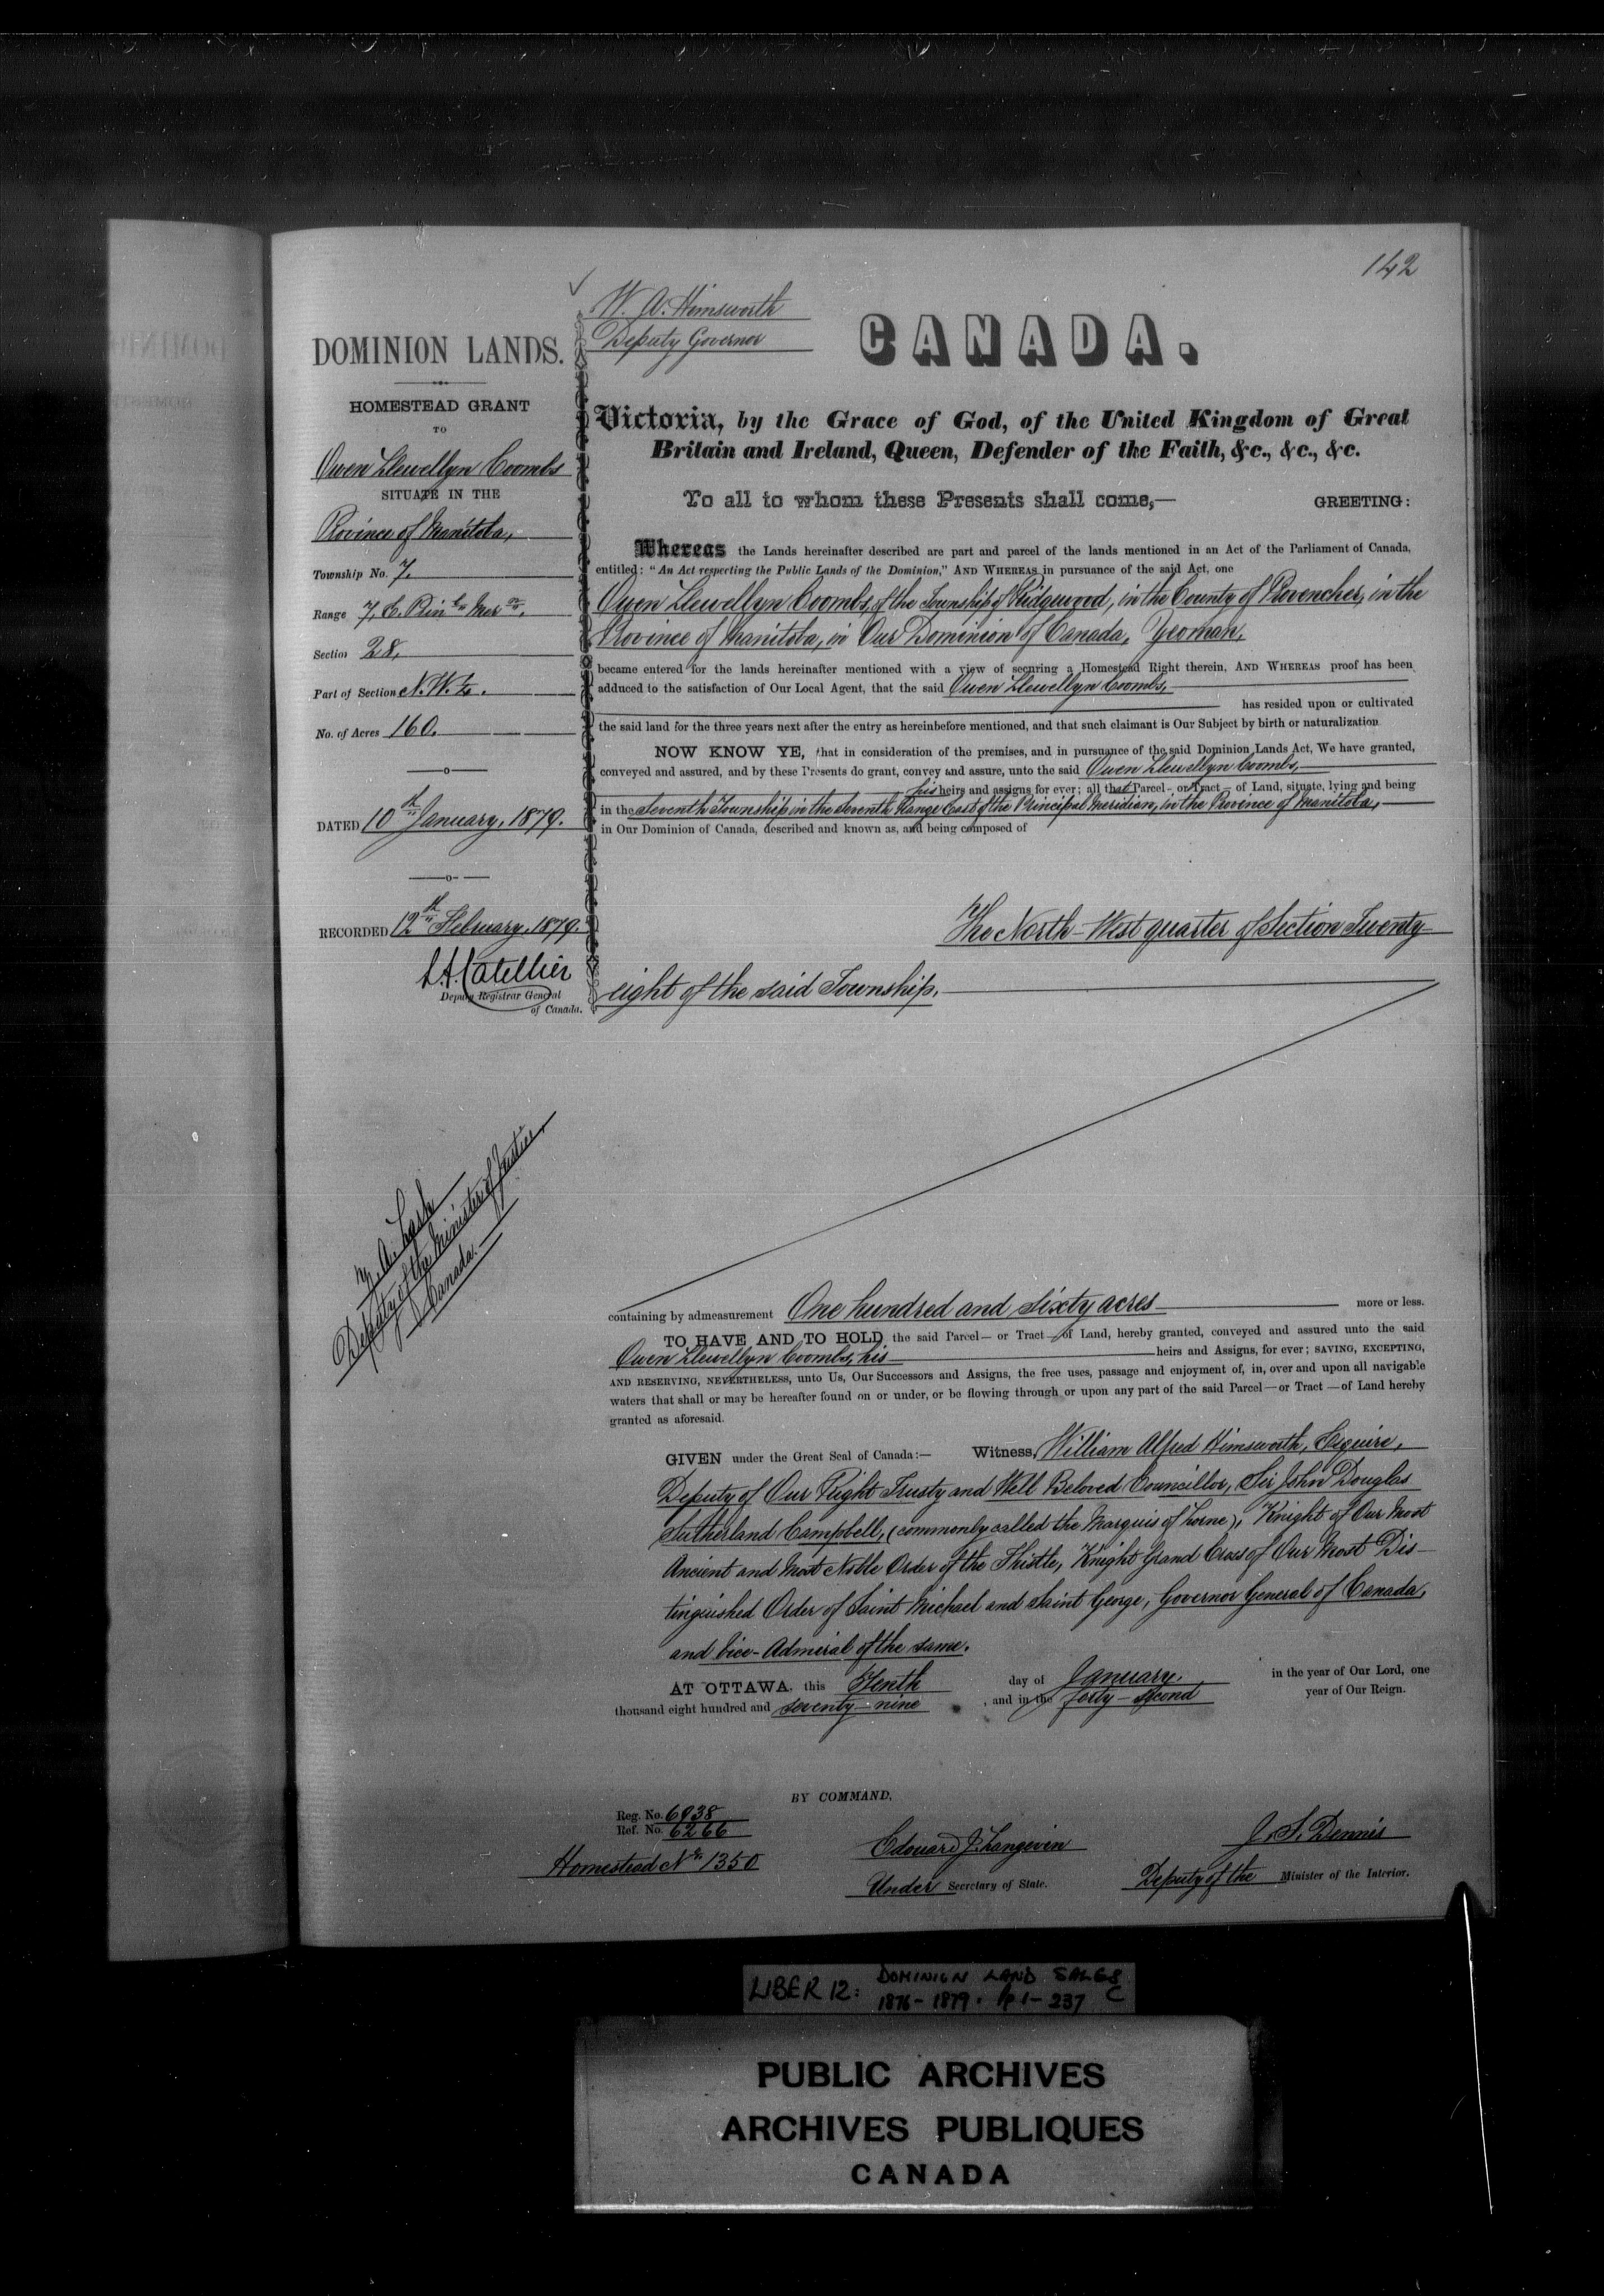 142
W. A. Himsworth
Deputy Governor
CANADA.
DOMINION LANDS.
HOMESTEAD GRANT
TO
Owen Llewellyn Coombs
SITUATE IN THE
Province of Manitoba,
Township No. 7.
Range 7, E. Prin. Mer.
Section 28.
Part of Section N. W. ¼.
No. of Acres 160.
DATED 10th January, 1879.
RECORDED 12th February, 1879.
L. A. Catellier
Deputy Registrar General
of Canada.
Z. A. Lash
Deputy of the Minister of Justice,
Canada.
Victoria, by the Grace of God, of the United Kingdom of Great
Britain and Ireland, Queen, Defender of the Faith, &c., &c., &c.
To all to whom these Presents shall come,— GREETING:
Whereas the Lands hereinafter described are part and parcel of the lands mentioned in an Act of the Parliament of Canada,
entitled: "An Act respecting the Public Lands of the Dominion," AND WHEREAS in pursuance of the said Act, one
Owen Llewellyn Coombs, of the Township of Ridgewood, in the County of Provencher, in the
Province of Manitoba, in Our Dominion of Canada, Yeoman,
became entered for the lands hereinafter mentioned with a view of securing a Homestead Right therein, AND WHEREAS proof has been
adduced to the satisfaction of Our Local Agent, that the said Owen Llewellyn Coombs,
has resided upon or cultivated
the said land for the three years next after the entry as hereinbefore mentioned, and that such claimant is Our Subject by birth or naturalization.
NOW KNOW YE, that in consideration of the premises, and in pursuance of the said Dominion Lands Act, We have granted,
conveyed and assured, and by these Presents do grant, convey and assure, unto the said Owen Llewellyn Coombs,
his heirs and assigns for ever; all that Parcel— or Tract— of Land, situate, lying and being
in the Seventh Township in the Seventh Range East of the Principal Meridian, in the Province of Manitoba,
in Our Dominion of Canada, described and known as, and being composed of
The North-West quarter of Section Twenty-
eight of the said Township.
containing by admeasurement One hundred and sixty acres more or less.
TO HAVE AND TO HOLD the said Parcel— or Tract—of Land, hereby granted, conveyed and assured unto the said
Owen Llewellyn Coombs, his heirs and Assigns, for ever; SAVING, EXCEPTING,
AND RESERVING, NEVERTHELESS, unto Us, Our Successors and Assigns, the free uses, passage and enjoyment of, in, over and upon all navigable
waters that shall or may be hereafter found on or under, or be flowing through or upon any part of the said Parcel—or Tract—of Land hereby
granted as aforesaid.
GIVEN under the Great Seal of Canada:— Witness, William Alfred Himsworth, Esquire,
Deputy of Our Right Trusty and Well Beloved Councillor, Sir John Douglas
Sutherland Campbell, (commonly called the Marquis of Lorne), Knight of Our Most
Ancient and Most Noble Order of the Thistle, Knight Grand Cross of Our Most Dis-
tinguished Order of Saint Michael and Saint George, Governor General of Canada,
and Vice-Admiral of the same.
AT OTTAWA, this Tenth day of January, in the year of Our Lord, one
thousand eight hundred and seventy-nine, and in the forty-second year of Our Reign.
BY COMMAND,
Reg. No. 6938
Ref. No. 6266
Homestead No. 1350
Edouard J. Langevin
Under Secretary of State.
J. S. Dennis
Deputy of the Minister of the Interior.
LIBER 12: DOMINION LAND SALES
1876-1879. p 1-237 C
PUBLIC ARCHIVES
ARCHIVES PUBLIQUES
CANADA